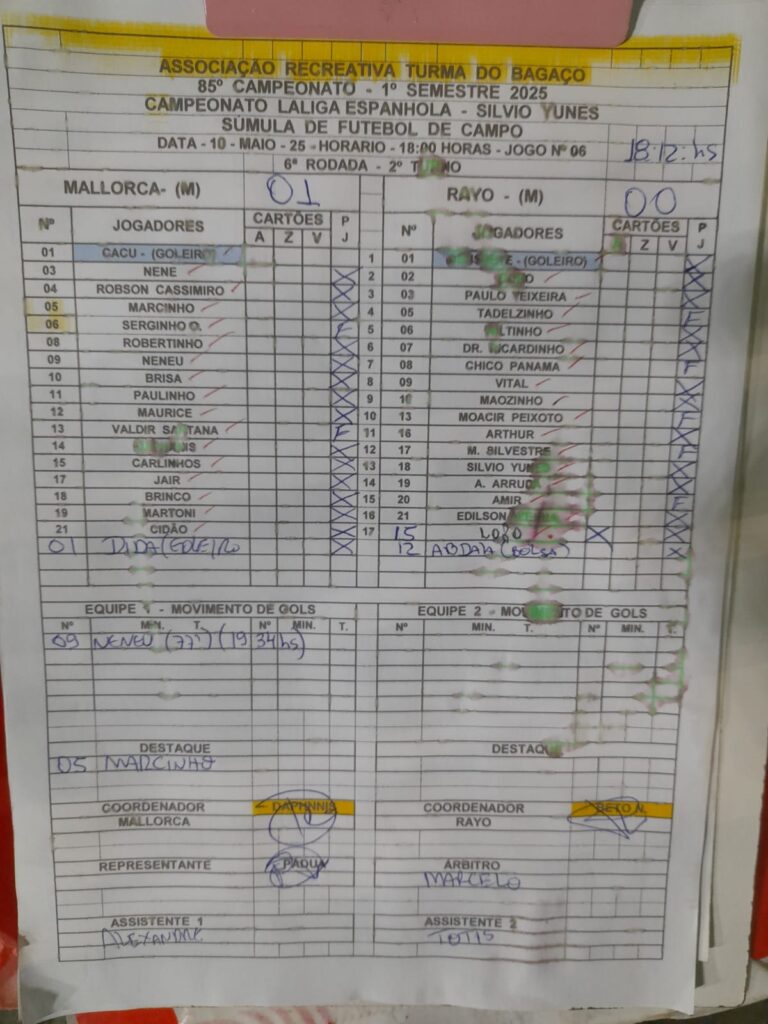 ASSOCIAÇÃO RECREATIVA TURMA DO BAGAÇO
85º CAMPEONATO - 1º SEMESTRE 2025
CAMPEONATO LALIGA ESPANHOLA - SILVIO YUNES
SÚMULA DE FUTEBOL DE CAMPO
DATA - 10 - MAIO - 25 - HORARIO - 18:00 HORAS - JOGO Nº 06 18:12:hs
6ª RODADA - 2º TURNO
MALLORCA- (M) 01 RAYO - (M) 00
Nº JOGADORES CARTÕES P Nº JOGADORES CARTÕES P
A Z V J A Z V J
01 CACU - (GOLEIRO) 1 01 - (GOLEIRO)
03 NENE X 2 02 X
04 ROBSON CASSIMIRO X 3 03 PAULO TEIXEIRA X
05 MARCINHO X 4 05 TADELZINHO F
06 SERGINHO O. F 5 06 X
08 ROBERTINHO X 6 07 DR. RICARDINHO X
09 NENEU X 7 08 CHICO PANAMA F
10 BRISA X 8 09 VITAL X
11 PAULINHO X 9 10 MAOZINHO X
12 MAURICE X 10 13 MOACIR PEIXOTO F
13 VALDIR SANTANA F 11 16 ARTHUR X
14 X 12 17 M. SILVESTRE F
15 CARLINHOS X 13 18 SILVIO YUNES X
17 JAIR X 14 19 A. ARRUDA X
18 BRINCO X 15 20 AMIR F
19 MARTONI X 16 21 EDILSON X
21 CIDÃO X 17 15 X
01 DIDA (GOLEIRO X 12 (BOLSA) X
EQUIPE 1 - MOVIMENTO DE GOLS EQUIPE 2 - MOVIMENTO DE GOLS
Nº MIN. T. Nº MIN. T. Nº MIN. T. Nº MIN. T.
09 NENEU (77') (19 34hs)
DESTAQUE DESTAQUE
05 MARCINHO
COORDENADOR DAPHNNIS COORDENADOR BETO N.
MALLORCA RAYO
REPRESENTANTE PAQUA ARBITRO
MARCELO
ASSISTENTE 1 ASSISTENTE 2
ALEXANDRE TOTIS